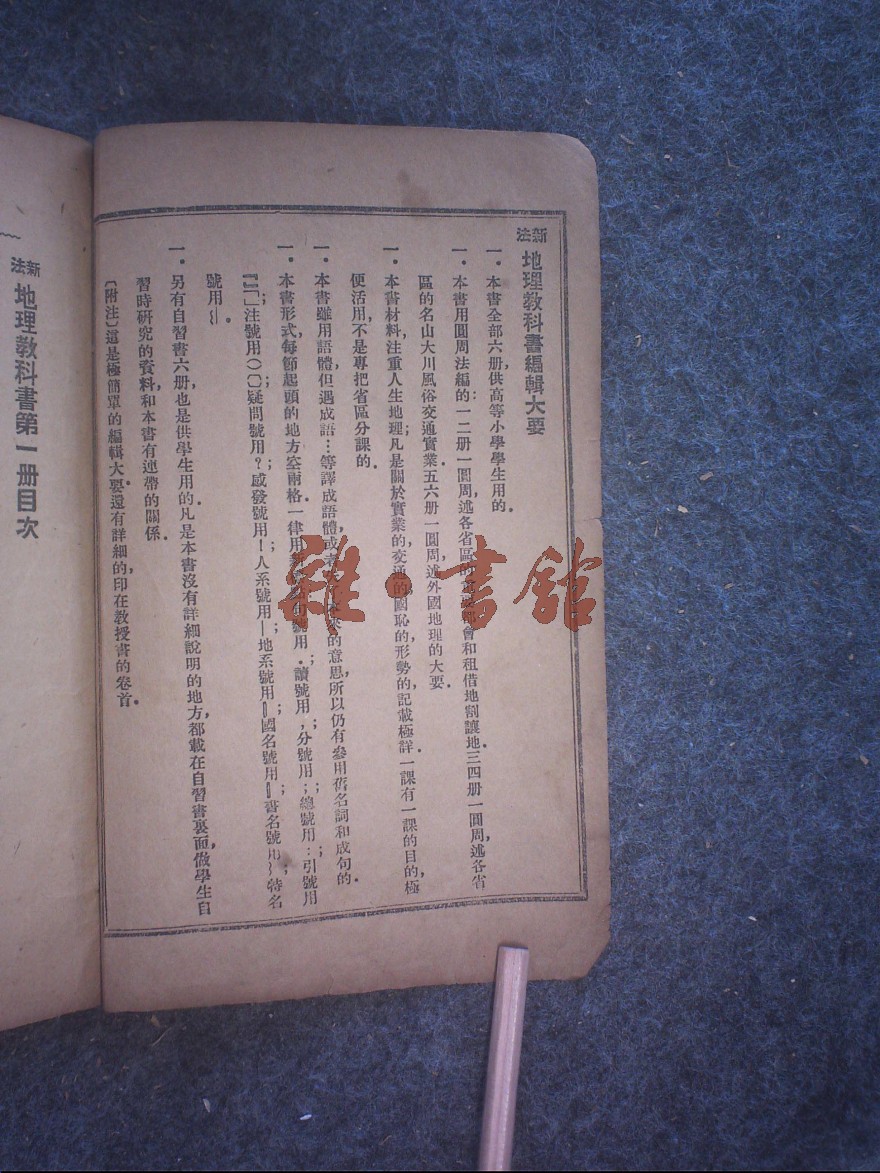 新法地理教科書編輯大要
一.本書全部六册,供高等小學學生用的.
一.本書用圓周法編的:一二册一圓周,述各省區的都會和租借地割讓地.三四册一圓周,述各省
區的名山大川風俗交通實業.五六册一圓周,述外國地理的大要.
一.本書材料,注重人生地理,凡是關於實業的交通的國恥的形勢的,記載極詳.一課有一課的目的,極
便活用,不是專把省區分課的.
一.本書雖用語體,但遇成語…等譯成語體,或者的意思,所以仍有參用舊名詞和成句的.
一.本書形式,每節起頭的地方空兩格.一律用句號用.讀號用,分號用;總號用:引號用
『』「」;注號用()〔〕;疑問號用?感發號用!人系號用—地系號用‖國名號用‖書名號用﹏特名
號用﹏.
一.另有自習書六册,也是供學生用的.凡是本書沒有詳細說明的地方,都載在自習書裏面,做學生自
習時研究的資料,和本書有連帶的關係.
〔附注〕這是極簡單的編輯大要.還有詳細的,印在教授書的卷首.
新法地理教科書第一册目次
雜·書館